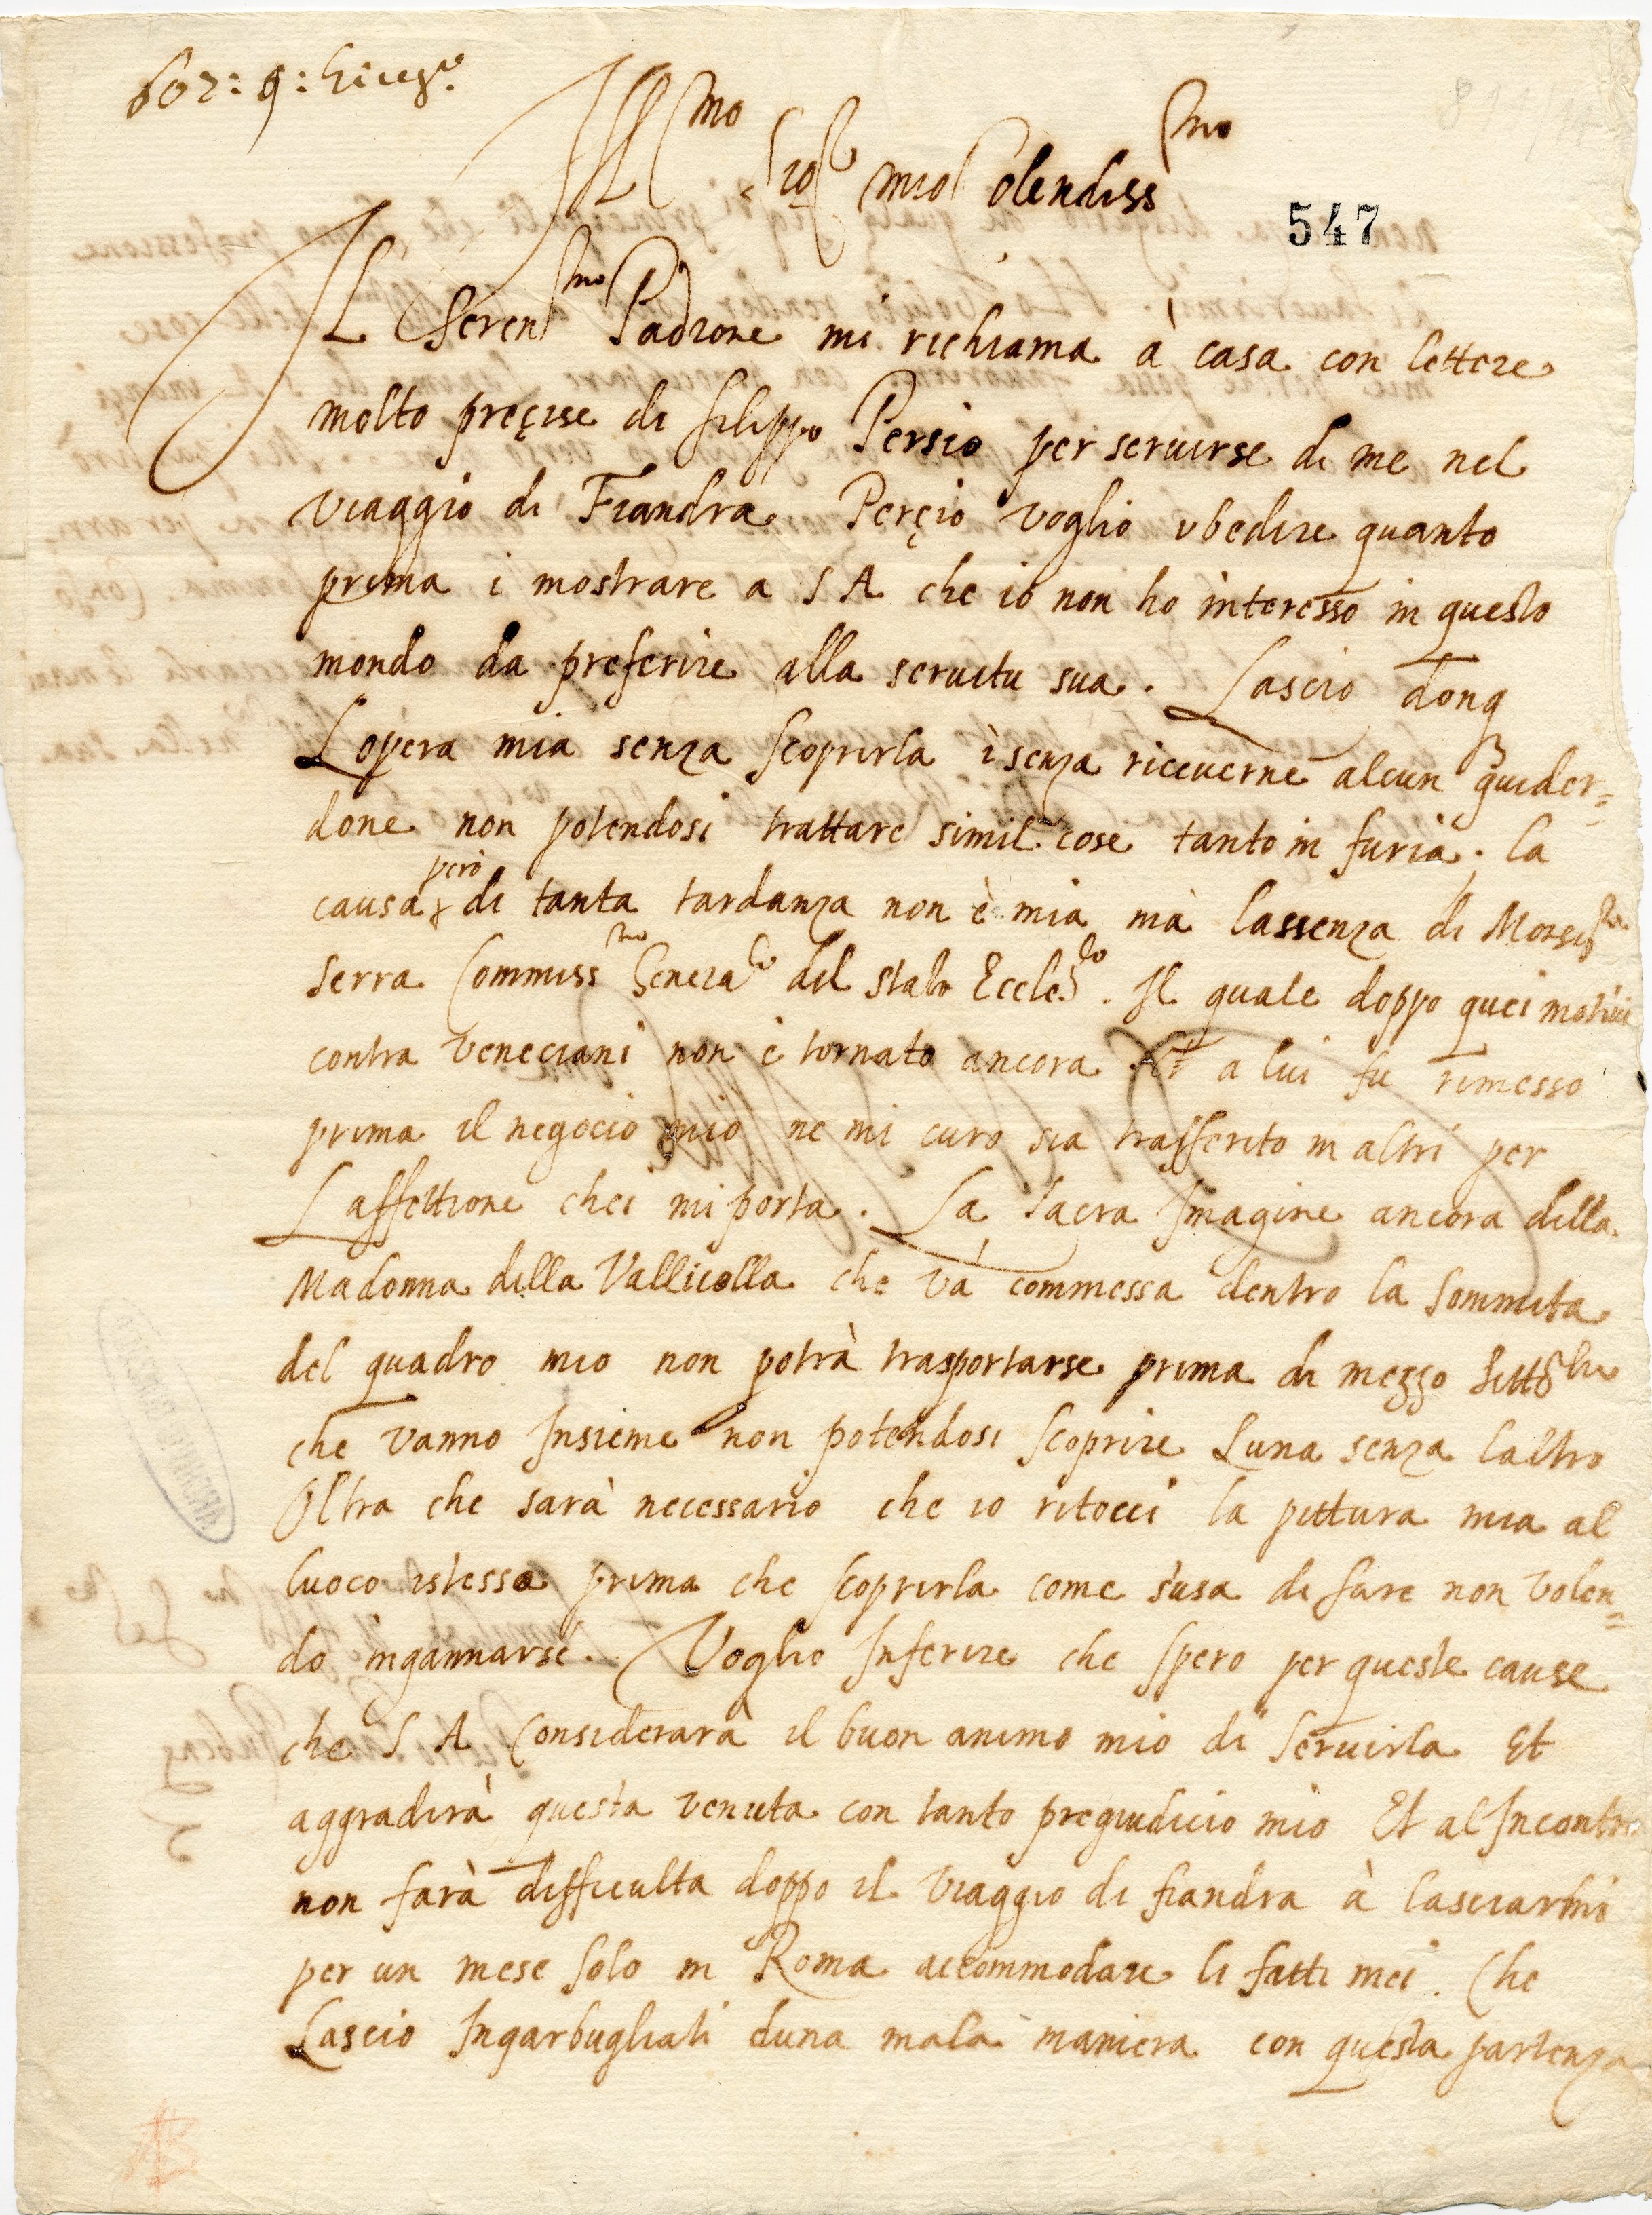 Ill^mo Sig^r mio Colendiss^mo
547
Il Seren^mo Padrone mi richiama à casa con lettere
molto preçise di filippo Persio per seruirse di me nel
viaggio di Fiandra. Perçio voglio vbedire quanto
prima i mostrare a S A che io non ho interesso in questo
mondo da preferire alla seruitu sua. Lascio donq
Lopera mia senza scoprirla i senza riceuerne alcun guider=
done non potendosi trattare simil cose tanto in furia. la
causa però di tanta tardanza non è mia mà lassenza di Monsig^re
Serra Commiss^rio Genera^le del stato Eccles^co. Il quale doppo quei motiui
contra Veneciani non è tornato ancora. Et a lui fu rimesso
prima il negocio mio ne mi curo sia trasferito in altri per
Laffettione chei mi porta. La Sacra Imagine ancora della
Madonna della Vallicella che và commessa dentro la sommita
del quadro mio non potrà trasportarse prima di mezzo Sett^bre
che vanno Insieme non potendosi scoprire Luna senza laltro
Oltra che sarà necessario che io ritocci la pittura mia al
luoco istesso prima che scoprirla come s'usa di fare non volen=
do ingannarse. Voglio Inferire che spero per queste cause
che S A Considerara il buon animo mio di Seruirla Et
aggradirà questa venuta con tanto pregiudicio mio Et al Incontro
non farà difficulta doppo il viaggio di fiandra à lasciarmi
per un mese solo in Roma accommodare li fatti mei. Che
Lascio Ingarbugliati duna mala maniera con questa partenza